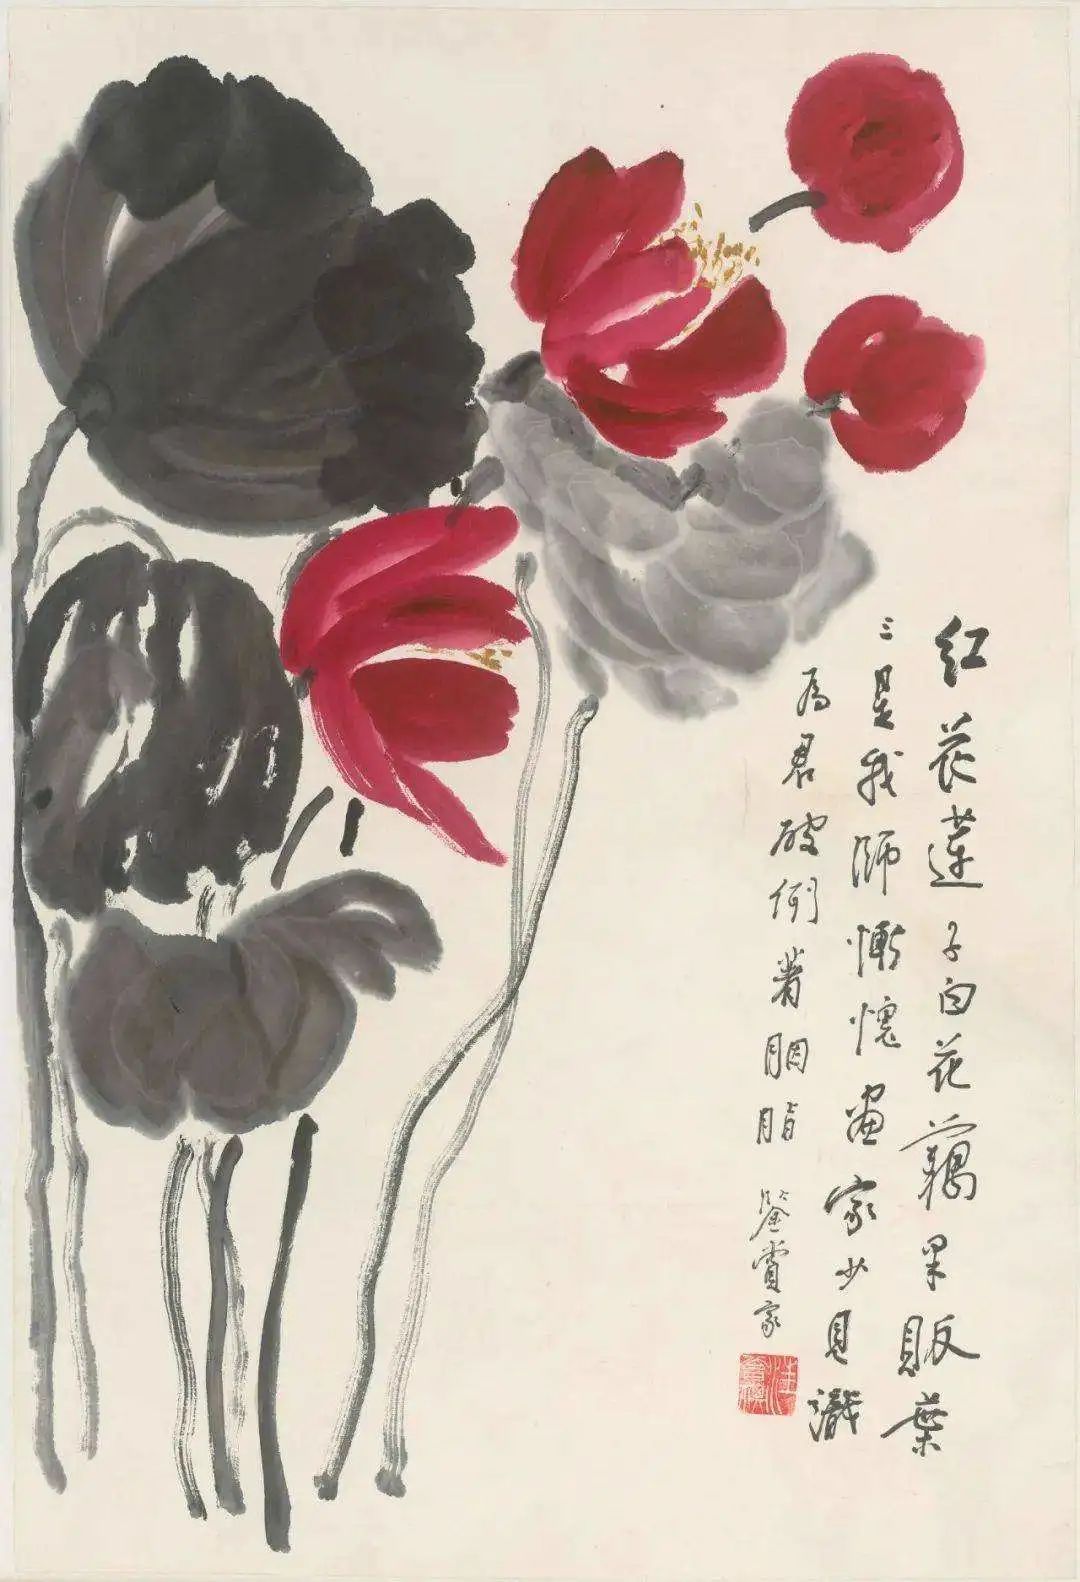 红花莲子白花藕果贩叶
三是我师惭愧画家少见识
为君破例著胭脂
鉴赏家